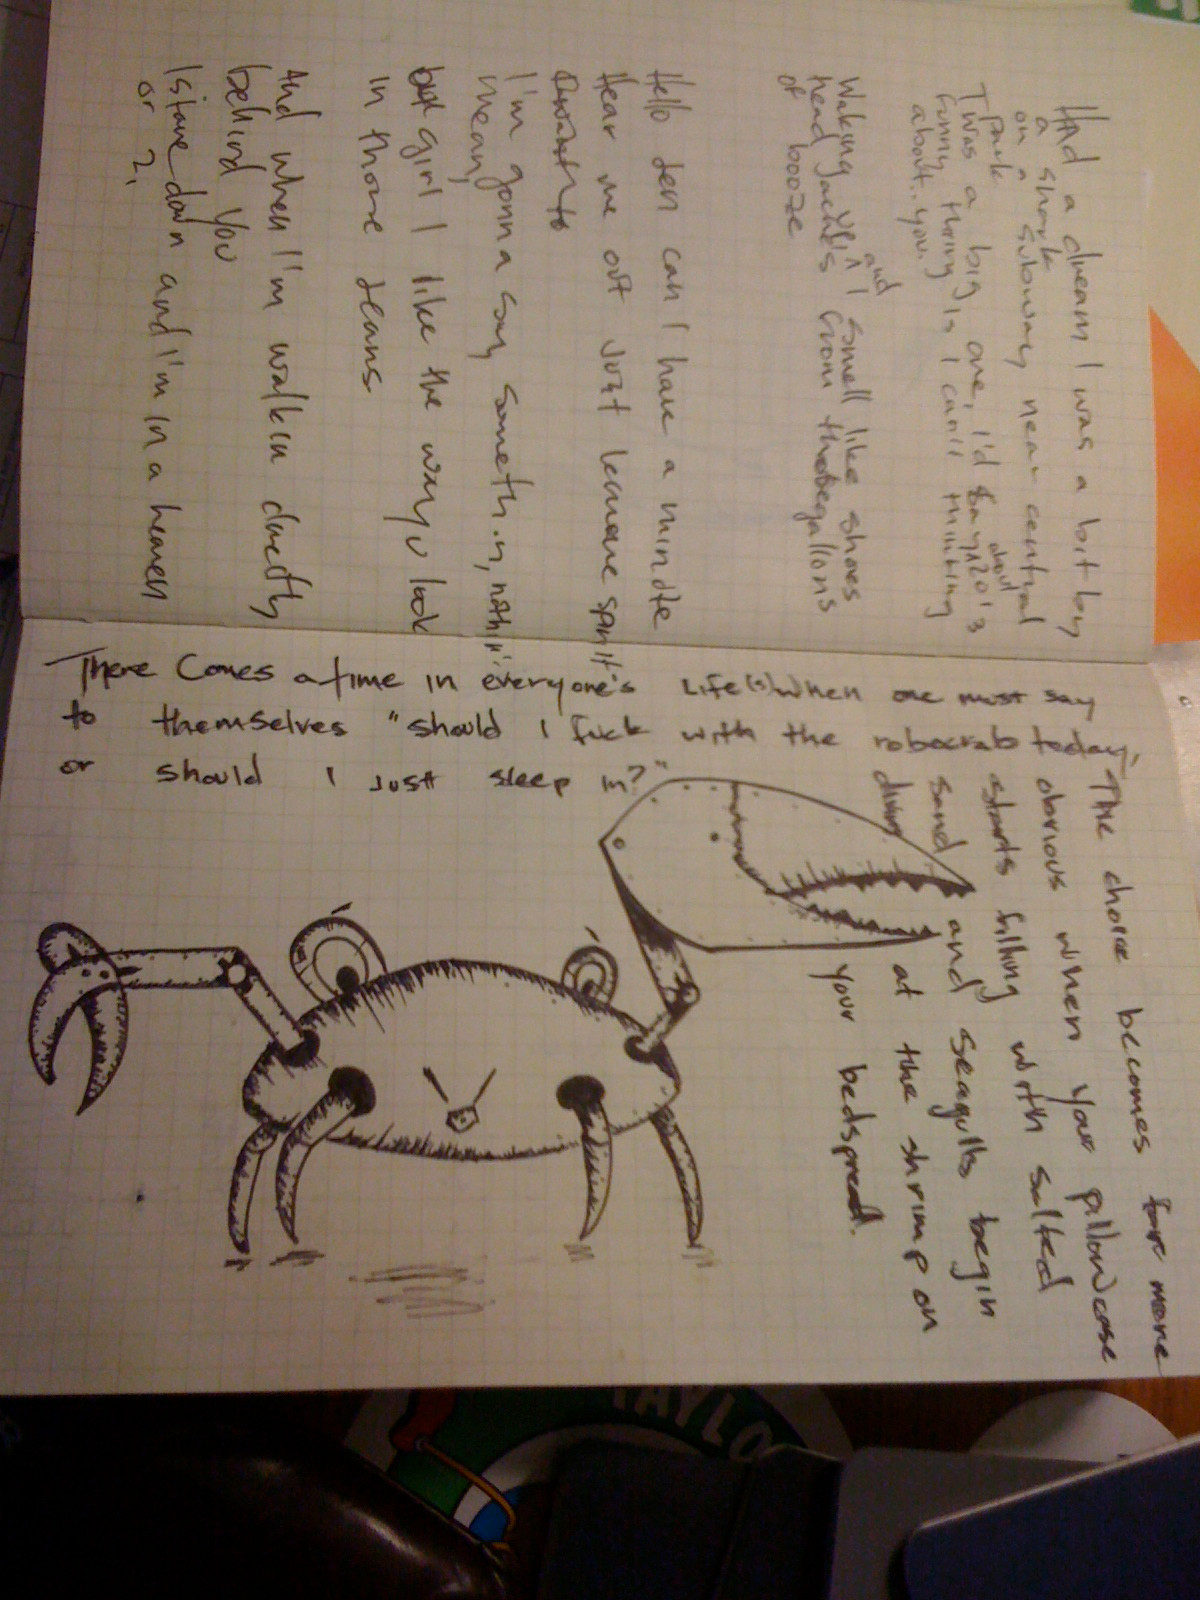 HAd a dream I was a bit by
a shark
on a subway near central
park
T was a big one, I'd say about 2013
Funny thing is I can't thinking
about.. you.
Waking up and I smell like shoes
head aches from the gallons
of booze
Hello Jen can I have a minute
Hear me out just lemme spit
I'm gonna say somethin, nothin'
mean,
but girl I like the way u look
in those jeans
And when I'm walkin directly
behind you
I stare down and I'm in a heaven
or 2,
There Comes a time in everyone's Life(s) when one must say
to themselves "should I fuck with the robocrab today,
or should I just sleep in?"
The choice becomes far more
obvious when your pillowcase
starts filling with salted
sand and seagulls begin
diving at the shrimp on
your bedspread.
TAYLO